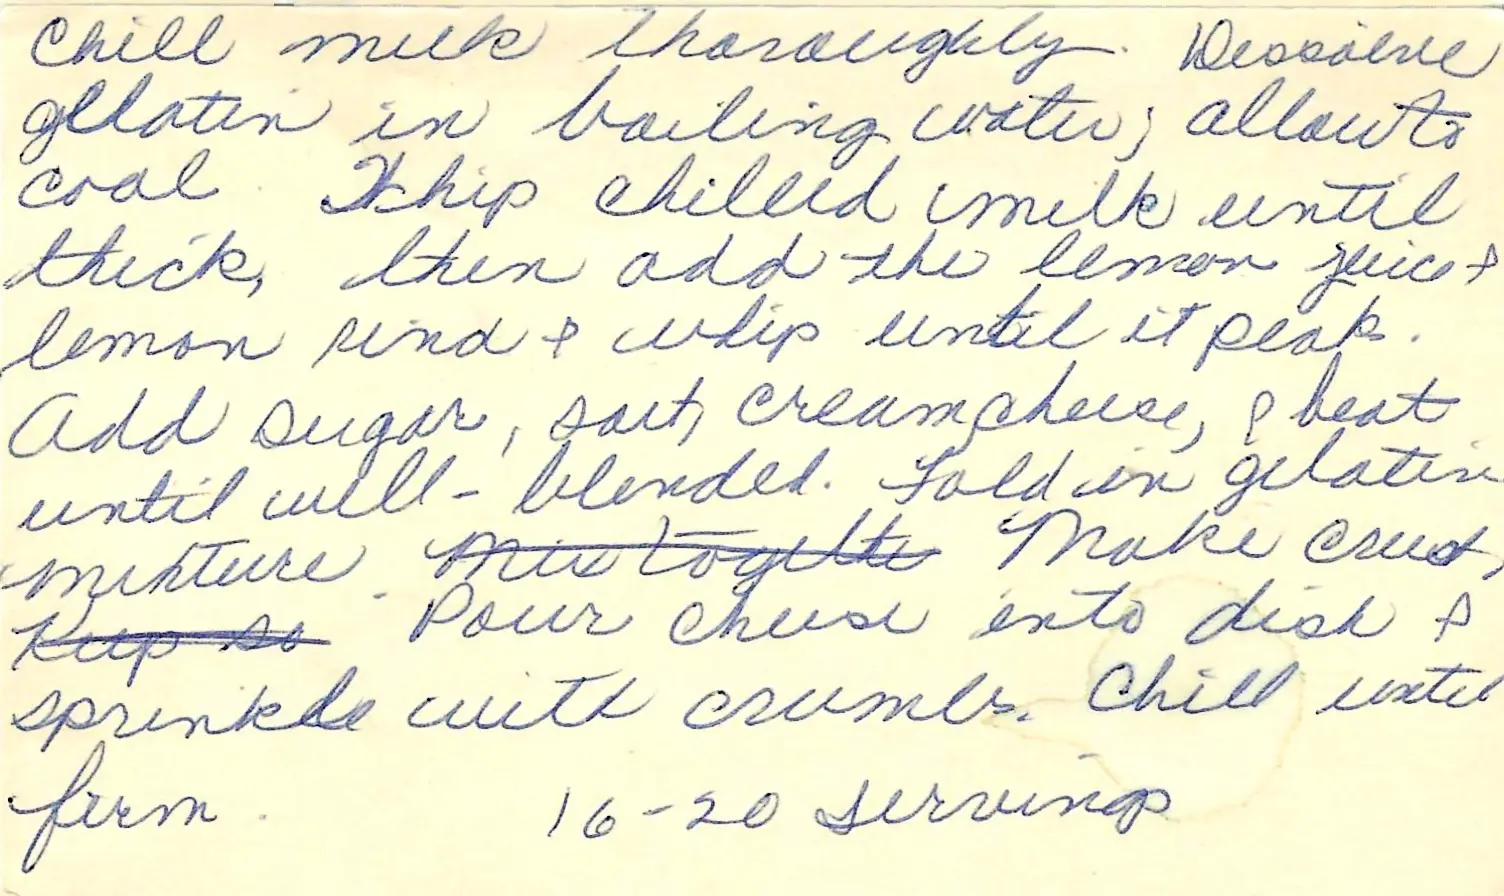 Chill milk thoroughly. Dissolve
gelatin in boiling water; allow to
cool. Whip chilled milk until
thick, then add the lemon juice &
lemon rind & whip until it peaks.
Add sugar, salt, cream cheese, & beat
until well-blended. Fold in gelatin
mixture. Mix together Make crust,
Keep so Pour cheese into dish &
sprinkle with crumbs. Chill until
firm. 16-20 servings